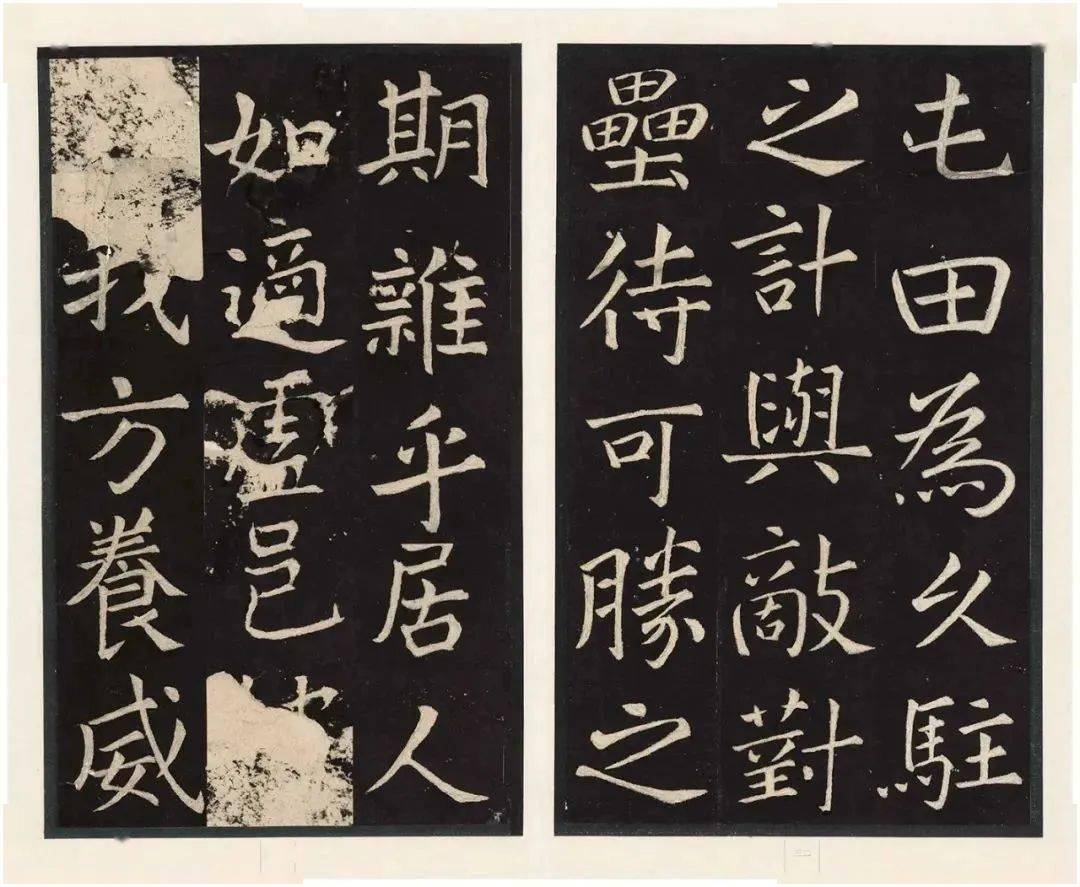 屯田為久駐
之計與敵對
壘待可勝之
期雜乎居人
如適虛邑
我方養威